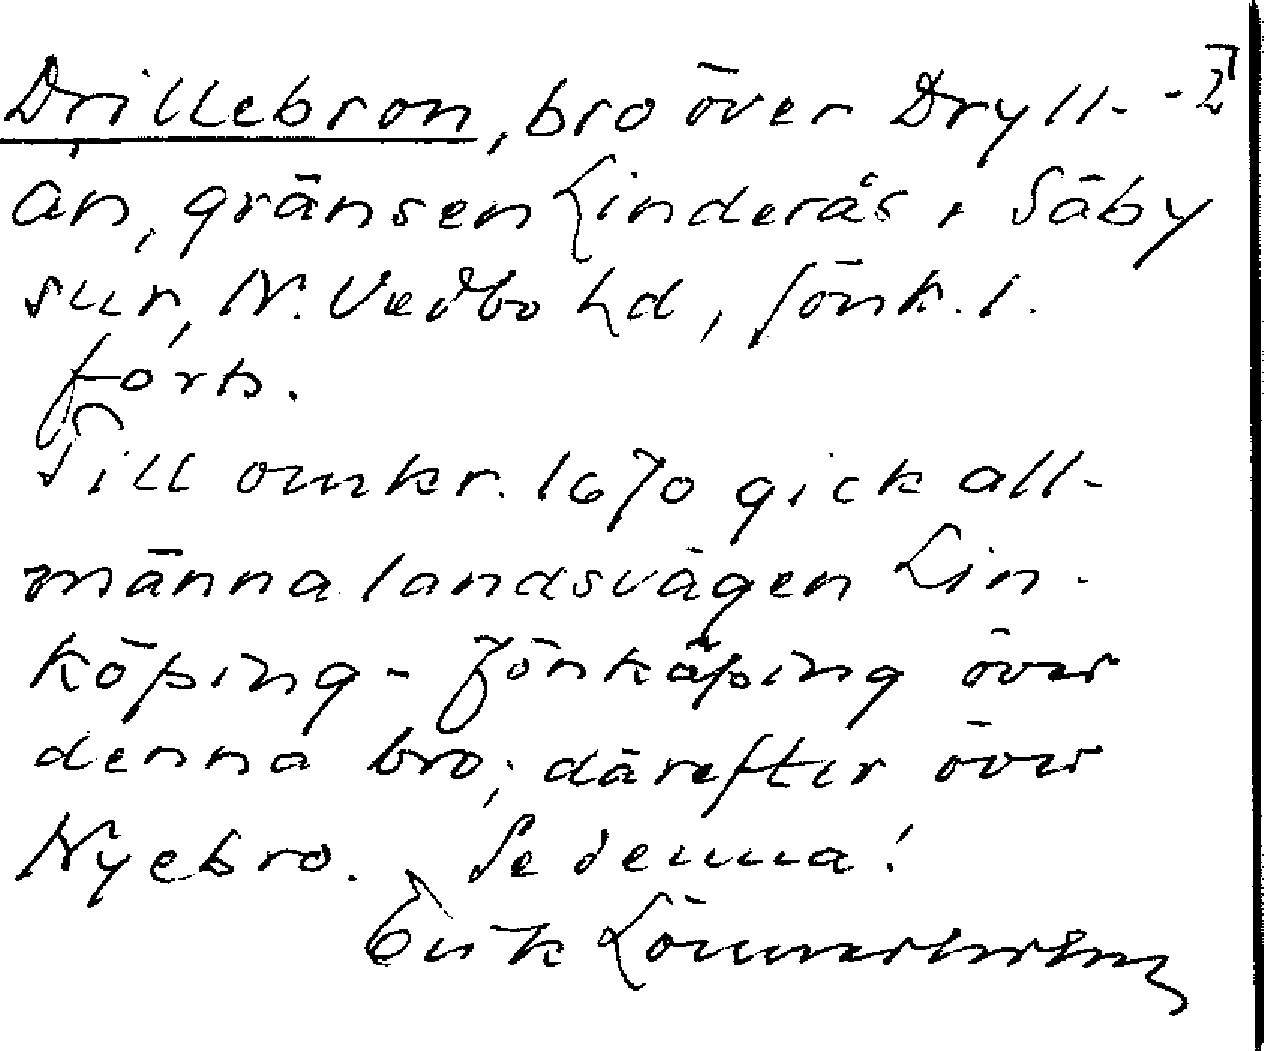 Drillebron, bro över Dryll-
ån, gränsen Linderås, Säby
snr, N. Vedbo hd, Jönk. l.
forts.
Till omkr. 1670 gick all-
männa landsvägen Lin-
köping - Jönköping över
denna bro; därefter över
Nyebro. Se denna!
Erik